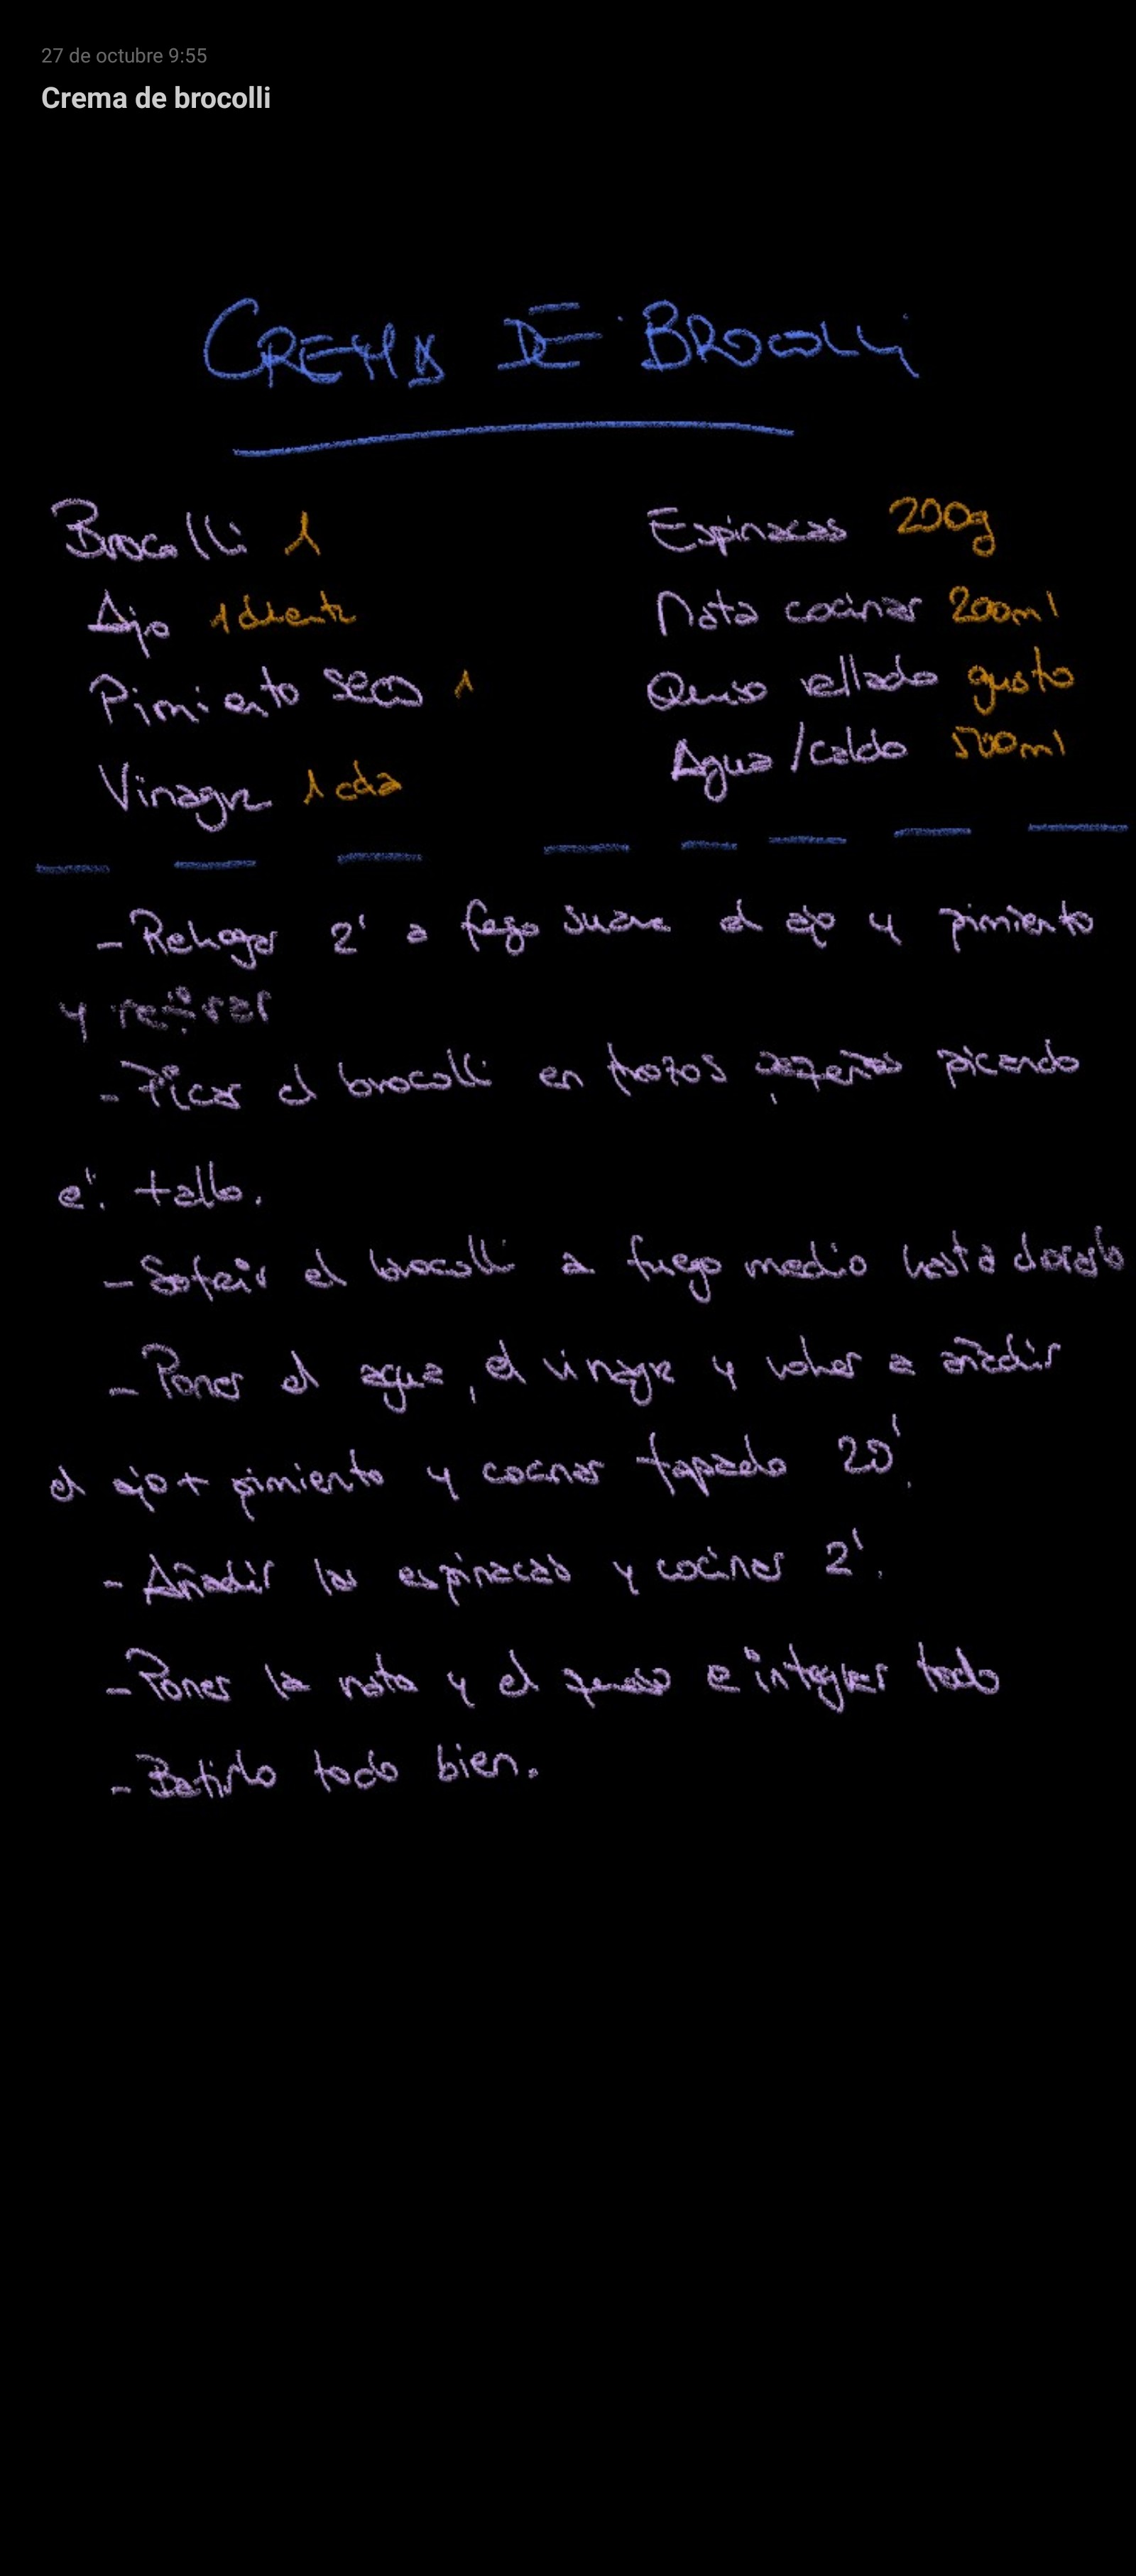 27 de octubre 9:55
Crema de brocolli
CREMA DE BROCOLLI
Brocolli 1
Espinacas 200g
Ajo 1 diente
Nata cocinar 200ml
Pimiento seco 1
Queso rallado gusto
Vinagre 1 cda
Agua/caldo 500ml
- Rehogar 2' a fego suave el ajo y pimiento
y retirar
- Picar el brocolli en trozos picando
el tallo.
- Sofreir el brocolli a fuego medio hasta dorado
- Poner el agua, el vinagre y volver a añadir
el ajo + pimiento y cocinar tapado 20'.
- Añadir las espinacas y cocinar 2'.
- Poner la nata y el queso e integrar todo
- Batirlo todo bien.